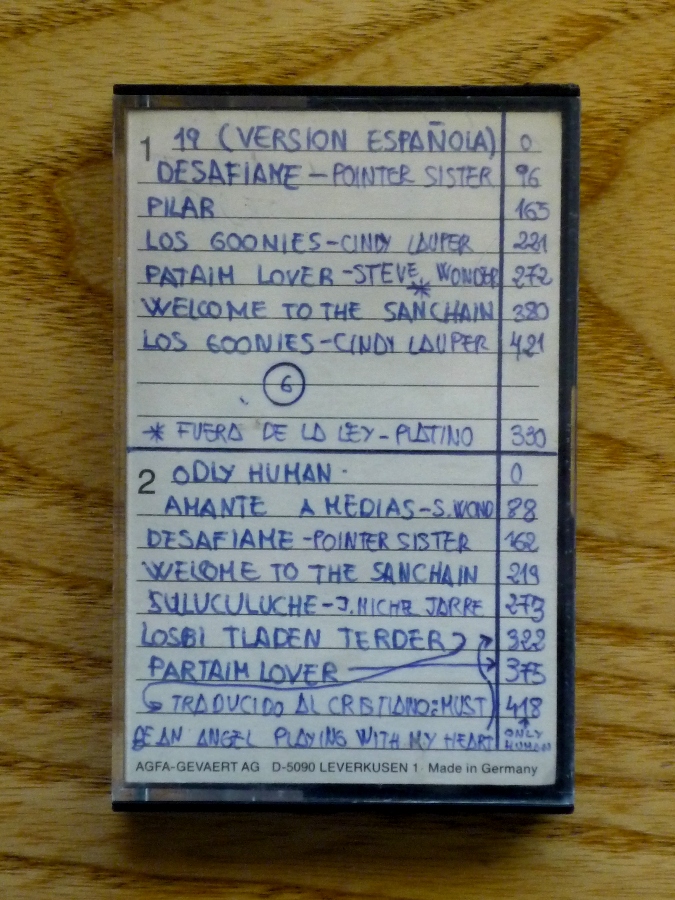 1 19 (VERSION ESPAÑOLA) 0
DESAFIAME - POINTER SISTER 96
PILAR 165
LOS GOONIES - CINDY LAUPER 221
PATAIM LOVER - STEVE WONDER 272
*
WELCOME TO THE SANCHAIN 380
LOS GOONIES - CINDY LAUPER 421
6
* FUERA DE LA LEY - PLATINO 330
2 ODLY HUMAN 0
AMANTE A MEDIAS - S. WOND 88
DESAFIAME - POINTER SISTER 162
WELOME TO THE SANCHAIN 219
SULUCULUCHE - J. MICHE JARRE 273
LOSBI TLADEN TERDER 322
PARTAIM LOVER 375
TRADUCIDO AL CRISTIANO: MUST 418
BE AN ANGEL PLAYING WITH MY HEART ONLY
HUMAN
AGFA-GEVAERT AG D-5090 LEVERKUSEN 1 Made in Germany